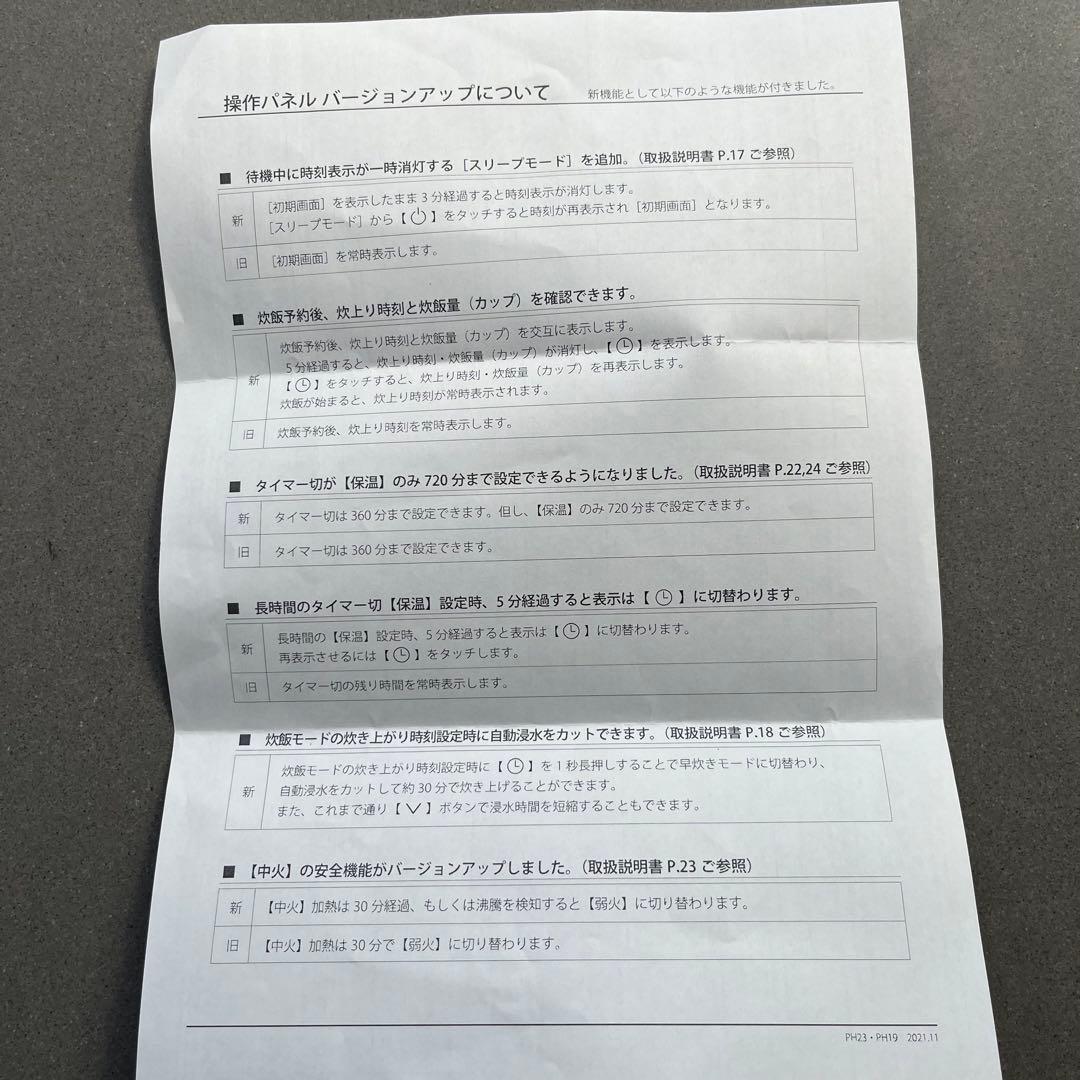 操作パネル バージョンアップについて 新機能として以下のような機能が付きました。
■ 待機中に時刻表示が一時消灯する［スリープモード］を追加。（取扱説明書 P.17 ご参照）
新
［初期画面］を表示したまま 3 分経過すると時刻表示が消灯します。
［スリープモード］から【⏻】をタッチすると時刻が再表示され［初期画面］となります。
旧 ［初期画面］を常時表示します。
■ 炊飯予約後、炊上り時刻と炊飯量（カップ）を確認できます。
新
炊飯予約後、炊上り時刻と炊飯量（カップ）を交互に表示します。
5分経過すると、炊上り時刻・炊飯量（カップ）が消灯し、【🕒】を表示します。
【🕒】をタッチすると、炊上り時刻・炊飯量（カップ）を再表示します。
炊飯が始まると、炊上り時刻が常時表示されます。
旧 炊飯予約後、炊上り時刻を常時表示します。
■ タイマー切が【保温】のみ 720 分まで設定できるようになりました。（取扱説明書 P.22,24 ご参照）
新 タイマー切は 360 分まで設定できます。但し、【保温】のみ 720 分まで設定できます。
旧 タイマー切は 360 分まで設定できます。
■ 長時間のタイマー切【保温】設定時、5 分経過すると表示は【🕒】に切替わります。
新
長時間の【保温】設定時、5 分経過すると表示は【🕒】に切替わります。
再表示させるには【🕒】をタッチします。
旧 タイマー切の残り時間を常時表示します。
■ 炊飯モードの炊き上がり時刻設定時に自動浸水をカットできます。（取扱説明書 P.18 ご参照）
新
炊飯モードの炊き上がり時刻設定時に【🕒】を 1 秒長押しすることで早炊きモードに切替わり、
自動浸水をカットして約 30 分で炊き上げることができます。
また、これまで通り【∨】ボタンで浸水時間を短縮することもできます。
■ 【中火】の安全機能がバージョンアップしました。（取扱説明書 P.23 ご参照）
新 【中火】加熱は 30 分経過、もしくは沸騰を検知すると【弱火】に切り替わります。
旧 【中火】加熱は 30 分で【弱火】に切り替わります。
PH23・PH19 2021.11